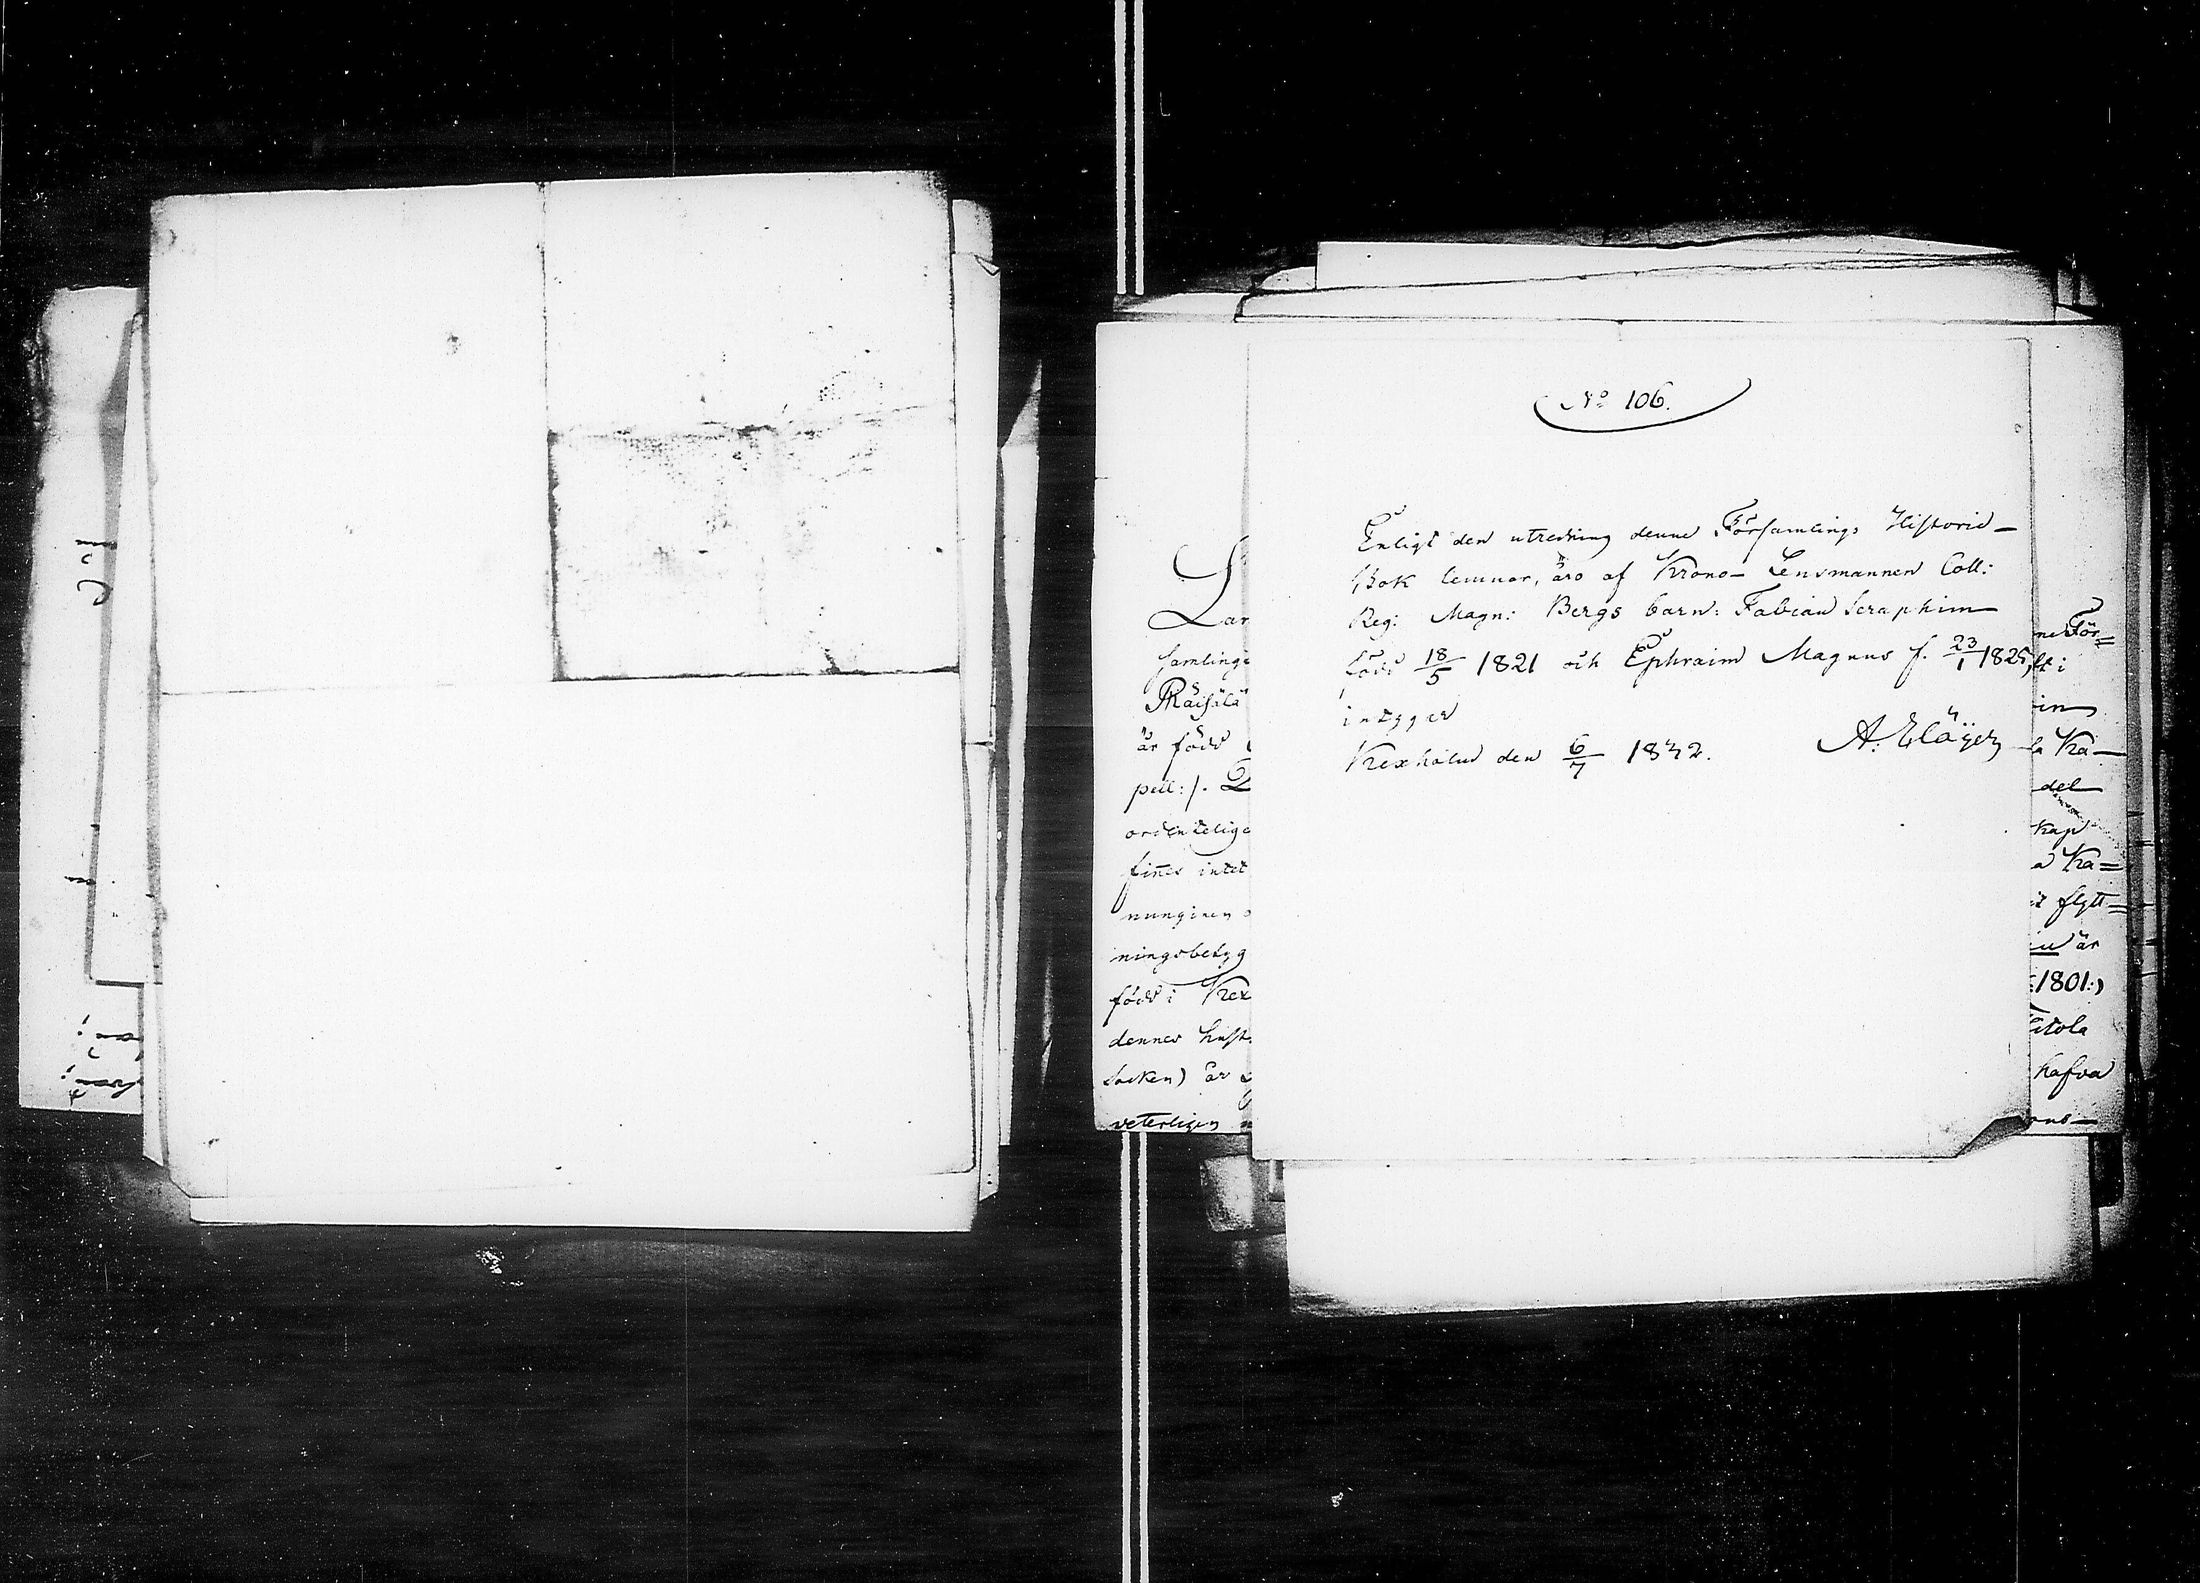 No 106.
Enligt den utredning denne Församlings Historie-
Bok lemnar, äro af Krono-Lensmannen Coll:
Reg: Magn: Bergs barn: Fabian Seraphim
född 18/5 1821 och Ephraim Magnus f. 23/1 1825,
intygar
Kexholm den 6/7 1842.
samlings
Räisälä
är född
pell:/.
ordentelige
fines intet
ningsbetyg
född i Kex
dennes hust.
Socken) är
veterligen
För=
Kä-
del
kap
Kä=
flytt=
är
1801:)
hafva